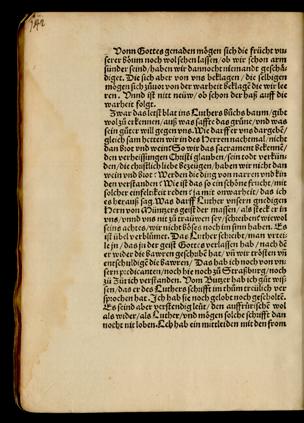 Vonn Gottes genaden mögen sich die frücht vn
serer böum noch wol sehen lassen / ob wir schon arm
sünder seind / haben wir dannocht niemandt geschä
diget. Die sich aber von vns beklagen / die selbigen
mögen sich zůuor von der warheit beklagē die wir lee
ren. Vnnd ist nitt neüw / ob schon der haß auff die
warheit folgt.
Zwar das letst blat ins Luthers bůchs baum / gibt
wol zů erkennen / auß was safft das grüne / vnd was
sein gůter will gegen vns. Wie darff er vns dargebē /
gleich sam hetten wir in des Herren nachtmal / nicht
dan brot vnd wein? So wir das sacrament bekennē /
den verheissungen Christi glauben / sein todt verkün
den / die christlich liebe bezeügen / haben wir nicht dan
wein vnd brot? Werden die ding von narren vnd kin
den verstanden? Wie ist das so ein schöne frücht / mit
solcher einfeltikeit reden? ja mit onwarheit / das ich
es herauß sag. Was darff Luther vnsern gnedigen
Hern von Müntzers geist der massen / als steck er in
vns / vnnd vns nit zů trauwen sey / schreiben? wiewol
seins achtes / wir nicht böses noch im sinn haben. Es
ist übel verblümet. Das Luther schreibt / man vrtei
le jn / das jn der geist Gottes verlassen hab / nach dē
er wider die bawren geschribē hat / vn wir trösten vñ
entschuldigē die bawren / Das hab ich noch von vn
sern predicanten / noch hie noch zů Straßburg / noch
zů Zürich verstanden. Vom Butzer hab ich gůt wis
sen / das er des Luthers schrifft im thům treülich ver
sprochen hat. Ich hab sie noch gelobt noch gescholtē.
Es seind aber verstendig leüt / den auffrürischē wol
als wider / als Luther / vnd mögen solche schrifft dan
nocht nit loben. Ich hab ein mitleiden mit den from